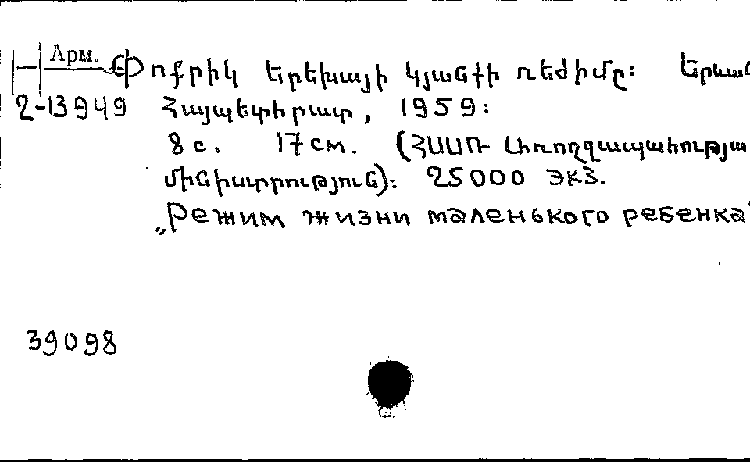 Арм. Փոքրիկ երեխայի կյանքի ռեժիմը: Երևան
2-13949 Հայպետհրատ, 1959:
8 с. 17 см. (ՀՍՍՌ Առողջապահության
մինիստրություն): 25000 экз.
„Режим жизни маленького ребенка"
39098